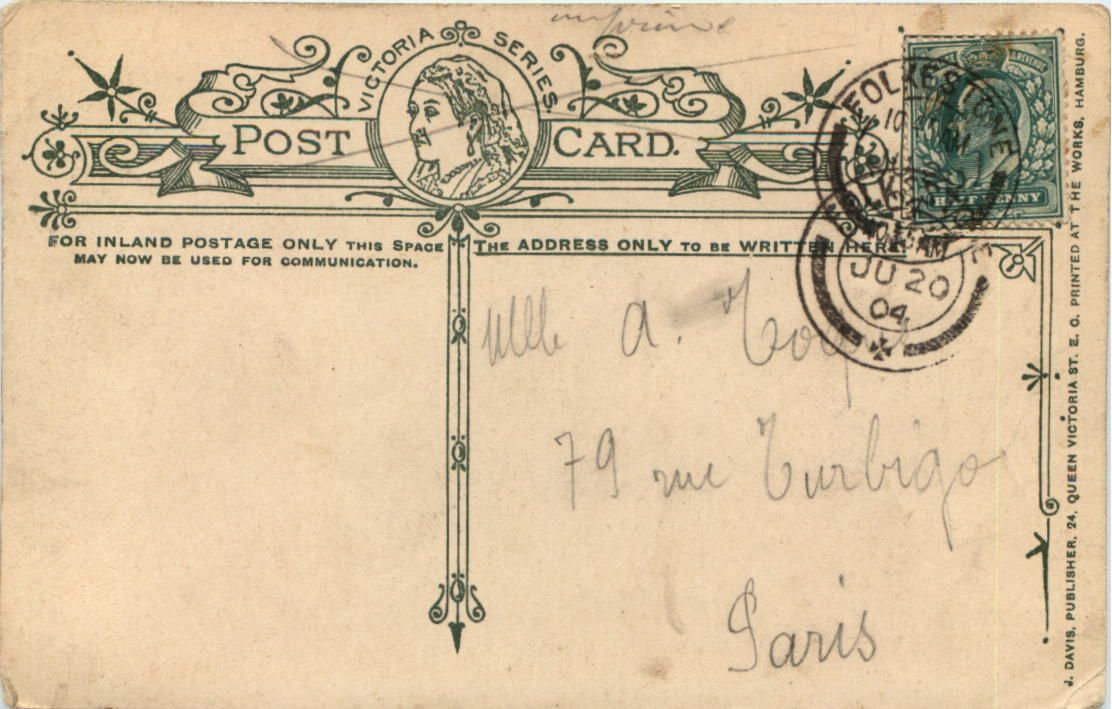 imprimé
VICTORIA SERIES
POST CARD.
HALF PENNY
FOLKESTONE
10
AM
FOLKESTONE
AM
JU 20
04
FOR INLAND POSTAGE ONLY THIS SPACE
MAY NOW BE USED FOR COMMUNICATION.
THE ADDRESS ONLY TO BE WRITTEN HERE.
Mlle A.
79 rue Turbigo
Paris
J. DAVIS, PUBLISHER, 24, QUEEN VICTORIA ST. E. C. PRINTED AT THE WORKS, HAMBURG.